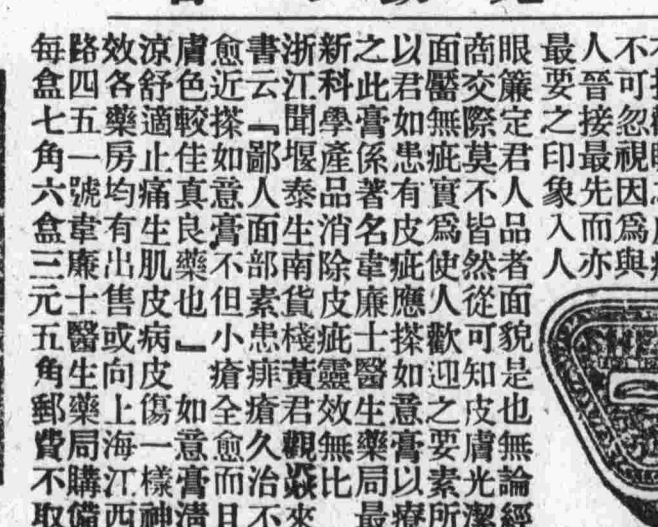 不可忽視因爲與
人晉接最先而亦
最要之印象入人
眼簾定君人品者面貌是也無論經
商交際莫不皆然從可知皮膚光潔
面靨無疵實爲使人歡迎之要素所
以君如患有皮疵應搽如意膏以療
之此膏係著名韋廉士醫生藥局最
新科學產品消除皮疵靈效無比
浙江聞堰泰生南貨棧黃君觀來
書云『鄙人面部素患痱瘡久治不
愈近搽如意膏不但小瘡全愈而且
膚色較佳真良藥也』如意膏清
涼舒適止痛生肌皮病皮傷一樣神
效各藥房均有出售或向上海江西
路四五一號韋廉士醫生藥局購備
每盒七角六盒三元五角郵費不取